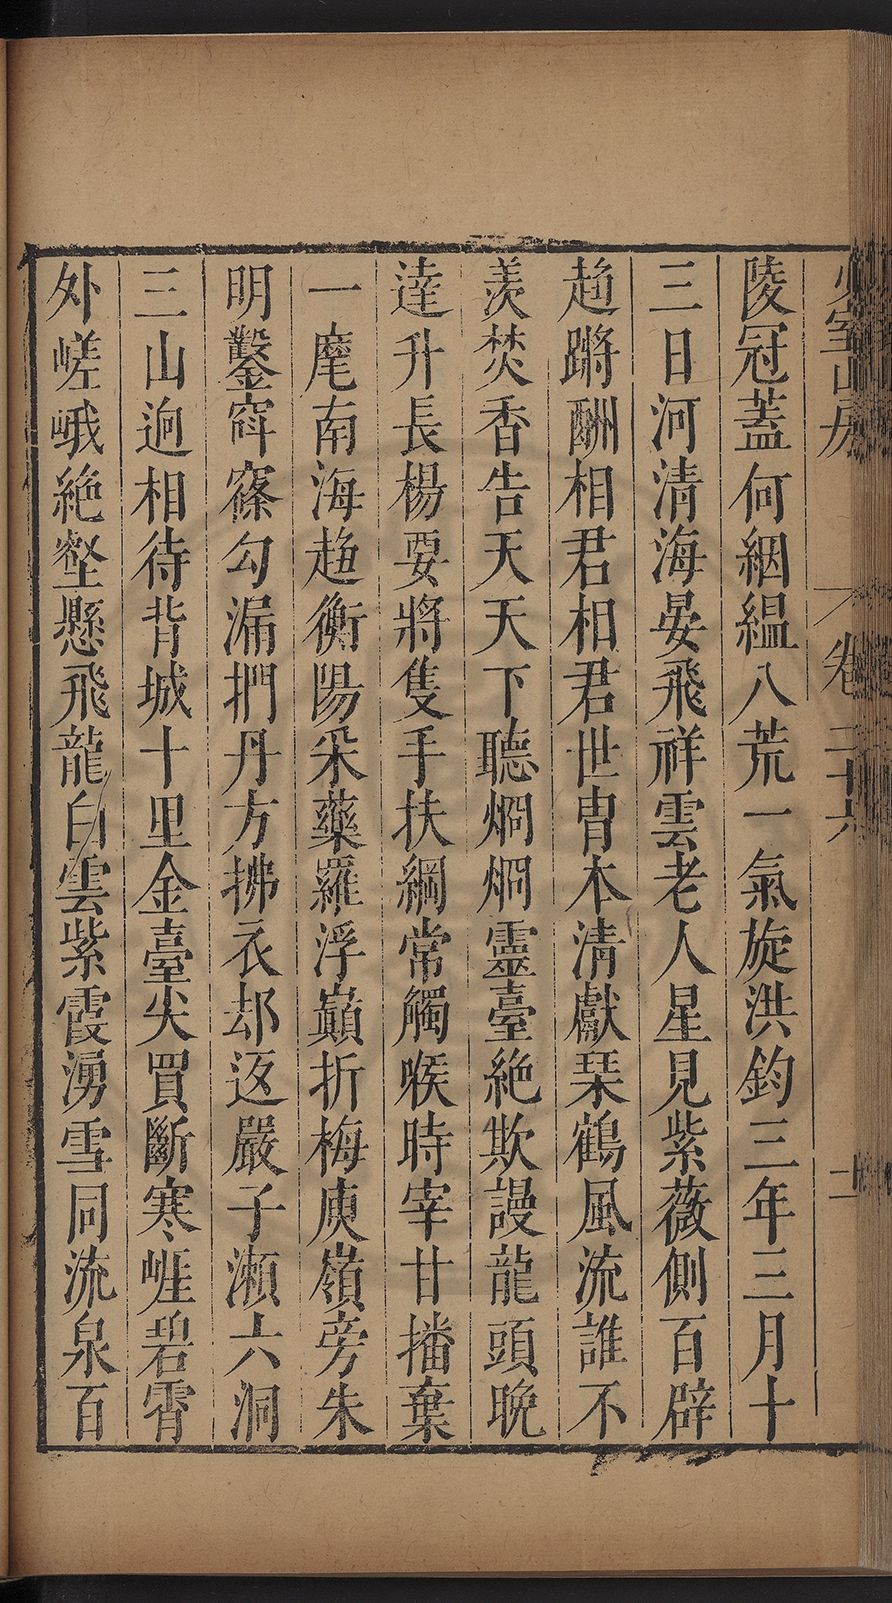 少室山房 卷二十六
陵冠蓋何絪縕八荒一氣旋洪鈞三年三月十
三日河清海晏飛祥雲老人星見紫薇側百辟
趋蹡酬相君相君世胄本清獻琹鶴風流誰不
羨焚香告天天下聽烱烱靈臺絶欺謾龍頭晩
達升長楊要將隻手扶綱常觸喉時宰甘播棄
一麾南海趋衡陽采藥羅浮巔折梅庾嶺旁朱
明鑿窅窱勾漏捫丹方拂衣却返嚴子瀬六洞
三山逈相待背城十里金臺尖買斷寒崕碧霄
外嵯峨絶壑懸飛龍白雲紫霞湧雪同流泉百